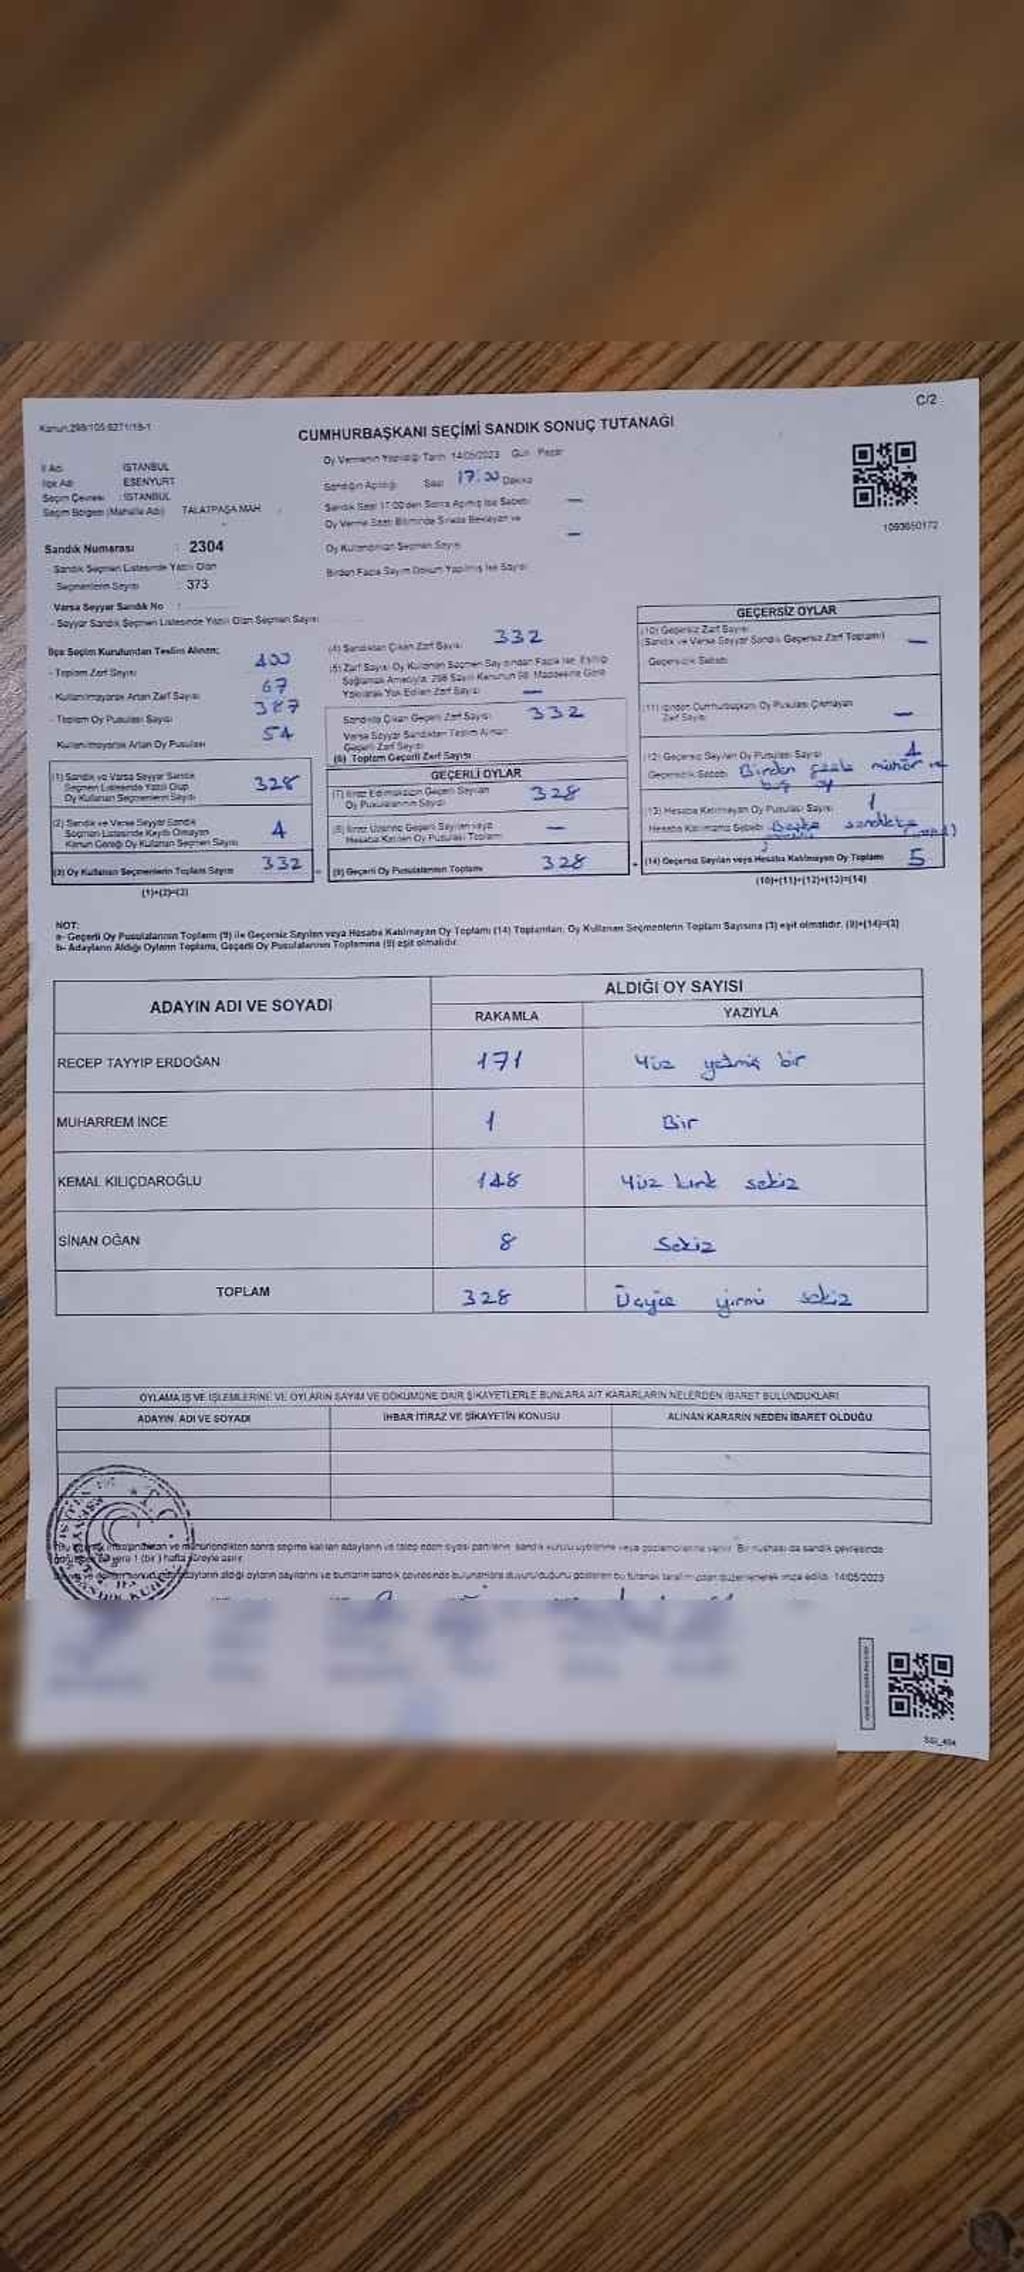 C/2
Kanun:298/105:6271/18-1
CUMHURBAŞKANI SEÇİMİ SANDIK SONUÇ TUTANAĞI
İl Adı : İSTANBUL
İlçe Adı : ESENYURT
Seçim Çevresi : İSTANBUL
Seçim Bölgesi (Mahalle Adı) TALATPAŞA MAH
Sandık Numarası : 2304
Sandık Seçmen Listesinde Yazılı Olan
Seçmenlerin Sayısı : 373
Varsa Seyyar Sandık No :
- Seyyar Sandık Seçmen Listesinde Yazılı Olan Seçmen Sayısı
Oy Vermenin Yapıldığı Tarih 14/05/2023 Gün Pazar
Sandığın Açıldığı Saat 17:00 Dakika
Sandık Saat 17:00'den Sonra Açılmış İse Sebebi —
Oy Verme Saati Bitiminde Sırada Bekleyen ve
Oy Kullandırılan Seçmen Sayısı —
Birden Fazla Sayım Döküm Yapılmış İse Sayısı
1093650172
İlçe Seçim Kurulundan Teslim Alınan;
- Toplam Zarf Sayısı 400
- Kullanılmayarak Artan Zarf Sayısı 67
- Toplam Oy Pusulası Sayısı 387
Kullanılmayarak Artan Oy Pusulası 54
(1) Sandık ve Varsa Seyyar Sandık
Seçmen Listesinde Yazılı Olup
Oy Kullanan Seçmenlerin Sayısı 328
(2) Sandık ve Varsa Seyyar Sandık
Seçmen Listesinde Kayıtlı Olmayan
Kanun Gereği Oy Kullanan Seçmen Sayısı 4
(3) Oy Kullanan Seçmenlerin Toplam Sayısı 332
(1)+(2)=(3)
(4) Sandıktan Çıkan Zarf Sayısı 332
(5) Zarf Sayısı Oy Kullanan Seçmen Sayısından Fazla İse, Eşitliği
Sağlamak Amacıyla, 298 Sayılı Kanunun 98. Maddesine Göre
Yakılarak Yok Edilen Zarf Sayısı —
Sandıkta Çıkan Geçerli Zarf Sayısı 332
Varsa Seyyar Sandıktan Teslim Alınan
Geçerli Zarf Sayısı
(6) Toplam Geçerli Zarf Sayısı
GEÇERLİ OYLAR
(7) İtiraz Edilmeksizin Geçerli Sayılan
Oy Pusulalarının Sayısı 328
(8) İtiraz Üzerine Geçerli Sayılan veya
Hesaba Katılan Oy Pusulası Toplamı —
(9) Geçerli Oy Pusulalarının Toplamı 328
GEÇERSİZ OYLAR
(10) Geçersiz Zarf Sayısı
(Sandık ve Varsa Seyyar Sandık Geçersiz Zarf Toplamı) —
Geçersizlik Sebebi
(11) İçinden Cumhurbaşkanı Oy Pusulası Çıkmayan
Zarf Sayısı —
(12) Geçersiz Sayılan Oy Pusulası Sayısı 4
Geçersizlik Sebebi Birden fazla mühür
(13) Hesaba Katılmayan Oy Pusulası Sayısı 1
Hesaba Katılmama Sebebi Başka sandıkta
(14) Geçersiz Sayılan veya Hesaba Katılmayan Oy Toplamı 5
(10)+(11)+(12)+(13)=(14)
NOT:
a- Geçerli Oy Pusulalarının Toplamı (9) ile Geçersiz Sayılan veya Hesaba Katılmayan Oy Toplamı (14) Toplamları, Oy Kullanan Seçmenlerin Toplam Sayısına (3) eşit olmalıdır. (9)+(14)=(3)
b- Adayların Aldığı Oyların Toplamı, Geçerli Oy Pusulalarının Toplamına (9) eşit olmalıdır.
ADAYIN ADI VE SOYADI
ALDIĞI OY SAYISI
RAKAMLA YAZIYLA
RECEP TAYYIP ERDOĞAN 171 Yüz yetmiş bir
MUHARREM İNCE 1 Bir
KEMAL KILIÇDAROĞLU 148 Yüz kırk sekiz
SİNAN OĞAN 8 Sekiz
TOPLAM 328 Üçyüz yirmi sekiz
OYLAMA İŞ VE İŞLEMLERİNE VE OYLARIN SAYIM VE DÖKÜMÜNE DAİR ŞİKAYETLERLE BUNLARA AİT KARARLARIN NELERDEN İBARET BULUNDUKLARI
ADAYIN ADI VE SOYADI İHBAR İTİRAZ VE ŞİKAYETİN KONUSU ALINAN KARARIN NEDEN İBARET OLDUĞU
ve mühürlendikten sonra seçime katılan adayların ve talep eden siyasi partilerin, sandık kurulu üyelerine veya gözlemcilerine verilir. Bir nüshası da sandık çevresinde
1 (bir) hafta süreyle asılır.
adayların aldığı oyların sayılarını ve bunların sandık çevresinde bulunanlara duyurulduğunu gösteren bu tutanak tarafımızdan düzenlenerek imza edildi. 14/05/2023
T.C.